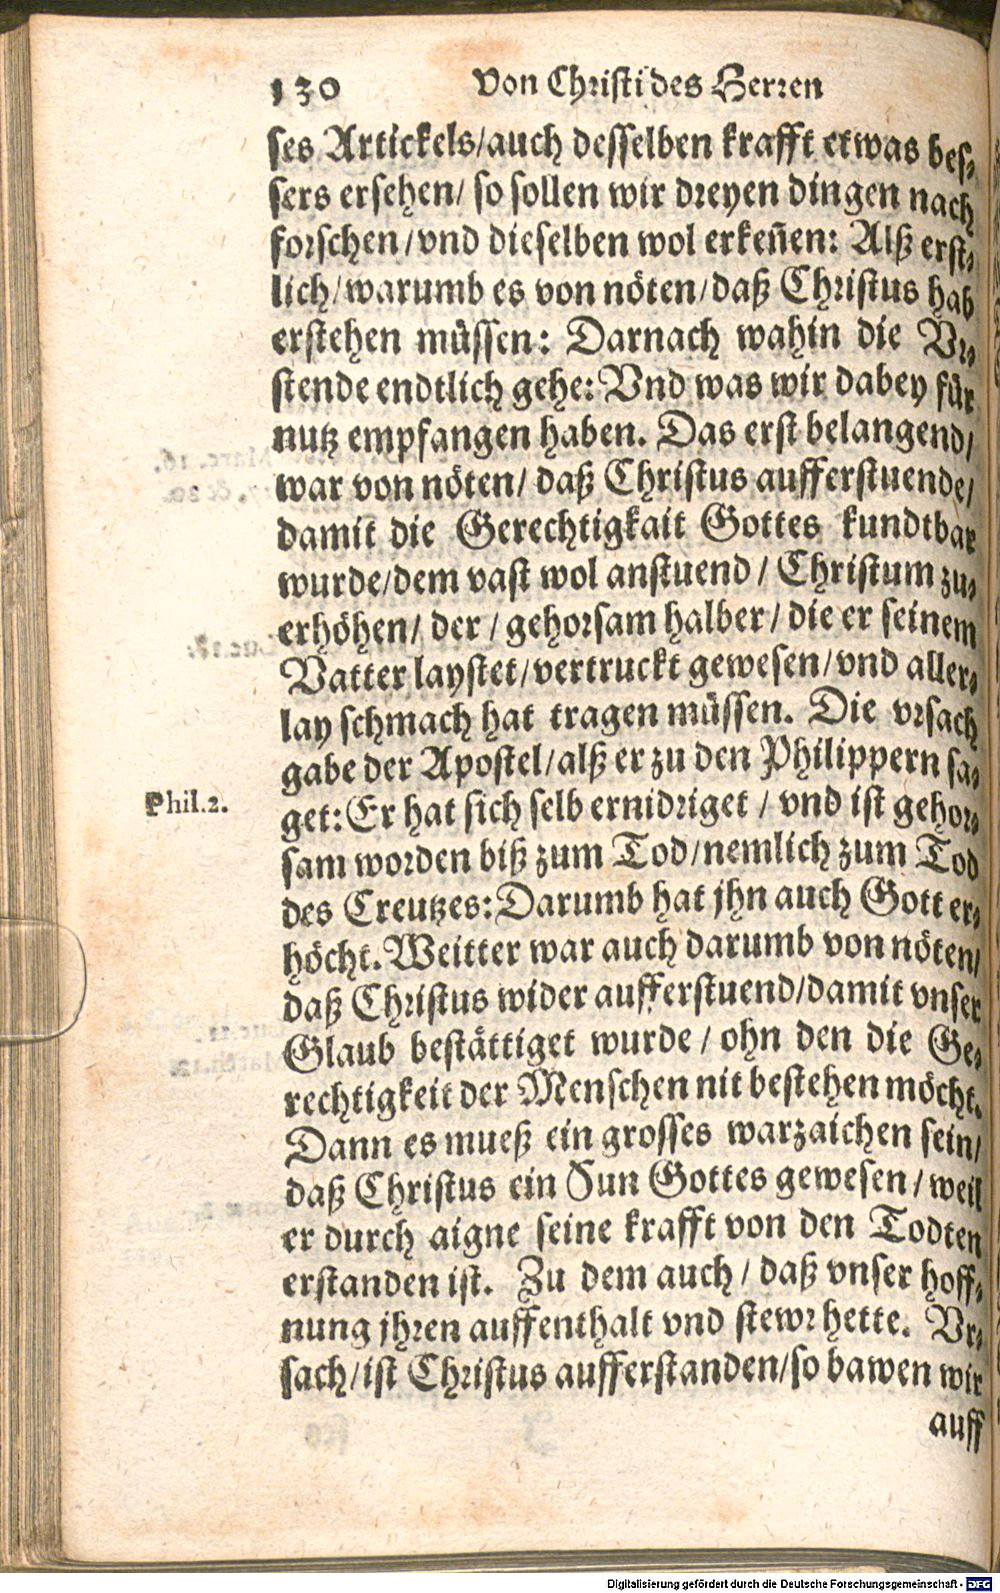 130 Von Christi des Herren
ses Artickels/auch desselben krafft etwas bes-
sers ersehen/ so sollen wir dreyen dingen nach
forschen/vnd dieselben wol erkeñen: Alß erst-
lich/warumb es von nöten/daß Christus hab
erstehen müssen: Darnach wahin die Vr-
stende endtlich gehe: Vnd was wir dabey für
nutz empfangen haben. Das erst belangend/
war von nöten/ daß Christus aufferstuende/
damit die Gerechtigkait Gottes kundtbar
wurde/dem vast wol anstuend / Christum zu-
erhöhen/ der / gehorsam halber / die er seinem
Vatter laystet/vertruckt gewesen/vnd aller-
lay schmach hat tragen müssen. Die vrsach
gabe der Apostel/alß er zu den Philippern sa-
Phil.2. get: Er hat sich selb ernidriget / vnd ist gehor-
sam worden biß zum Tod/nemlich zum Tod
des Creutzes: Darumb hat jhn auch Gott er-
höcht. Weitter war auch darumb von nöten/
daß Christus wider aufferstuend/damit vnser
Glaub bestättiget wurde / ohn den die Ge-
rechtigkeit der Menschen nit bestehen möcht.
Dann es mueß ein grosses warzaichen sein/
daß Christus ein Sun Gottes gewesen / weil
er durch aigne seine krafft von den Todten
erstanden ist. Zu dem auch / daß vnser hoff-
nung jhren auffenthalt vnd stewr hette. Vr-
sach/ist Christus aufferstanden/so bawen wir
auff
Digitalisierung gefördert durch die Deutsche Forschungsgemeinschaft - DFG